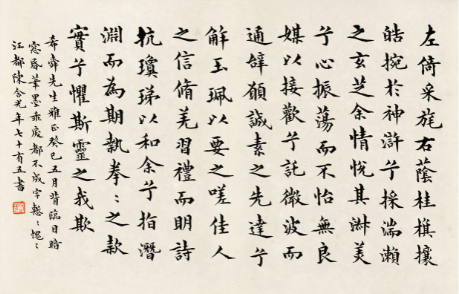 左倚采旄右蔭桂旗攘
皓捥於神滸兮採湍瀨
之玄芝余情悅其淑美
兮心振蕩而不怡無良
媒以接歡兮託微波而
通辭願誠素之先達兮
解玉珮以要之嗟佳人
之信脩羌習禮而明詩
抗瓊珶以和余兮指潛
淵而為期執拳〻之款
實兮懼斯靈之我欺
舜先生雅正癸巳五月目暗
窓昏筆墨乖度都不成字愧〻
江都陳含光年七十有五書